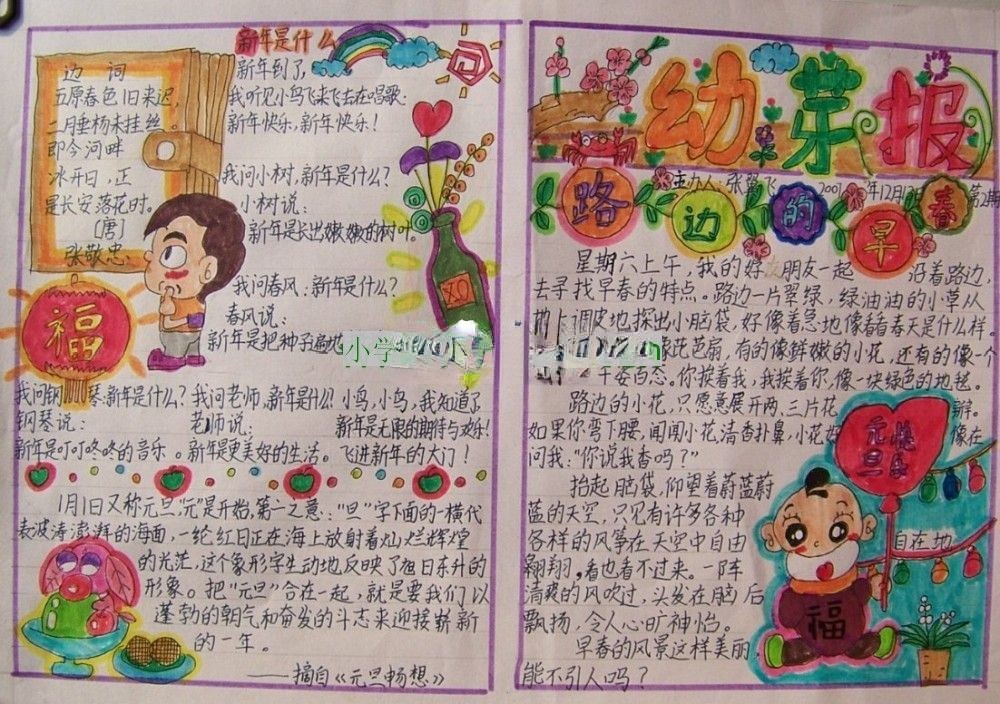 新年是什么
边 词
五原春色旧来迟,
二月垂杨未挂丝。
即今河畔
冰开日,正
是长安落花时。
〔唐〕
张敬忠
福
新年到了,
我听见小鸟飞来飞去在唱歌:
新年快乐,新年快乐!
我问小树,新年是什么?
小树说:
新年是长出嫩嫩的树叶。
我问春风:新年是什么?
春风说:
新年是把种子遍地
XO
我问钢琴:新年是什么?
钢琴说:
新年是叮叮咚咚的音乐。
我问老师,新年是什么?
老师说:
新年是更美好的生活。
小鸟,小鸟,我知道了
新年是无限的期待与欢乐!
飞进新年的大门!
1月1日又称元旦,"元"是开始,第一之意;"旦"字下面的一横代
表波涛澎湃的海面,一纶红日正在海上放射着灿烂辉煌
的光茫,这个象形字生动地反映了旭日东升的
形象。把"元旦"合在一起,就是要我们以
蓬勃的朝气和奋发的斗志来迎接崭新
的一年。
——摘自《元旦畅想》
幼芽报
主办人:张翼飞 200 年12月
路边的早春
星期六上午,我的好朋友一起 沿着路边,
去寻找早春的特点。路边一片翠绿,绿油油的小草从
地上调皮地探出小脑袋,好像着急地像看看春天是什么样。
芭扇,有的像鲜嫩的小花,还有的像一个
千姿百态。你挨着我,我挨着你,像一块绿色的地毯。
路边的小花,只愿意展开两、三片花 辩。
如果你弯下腰,闻闻小花,清香扑鼻,小花好 像在
问我:"你说我香吗?"
抬起脑袋,仰望着蔚蓝蔚
蓝的天空,只见有许多各种
各样的风筝在天空中自由 自在地
翱翔,看也看不过来。一阵
清爽的风吹过,头发在脑后
飘扬,令人心旷神怡。
早春的风景这样美丽
能不引人吗?
元旦快乐
福
小学